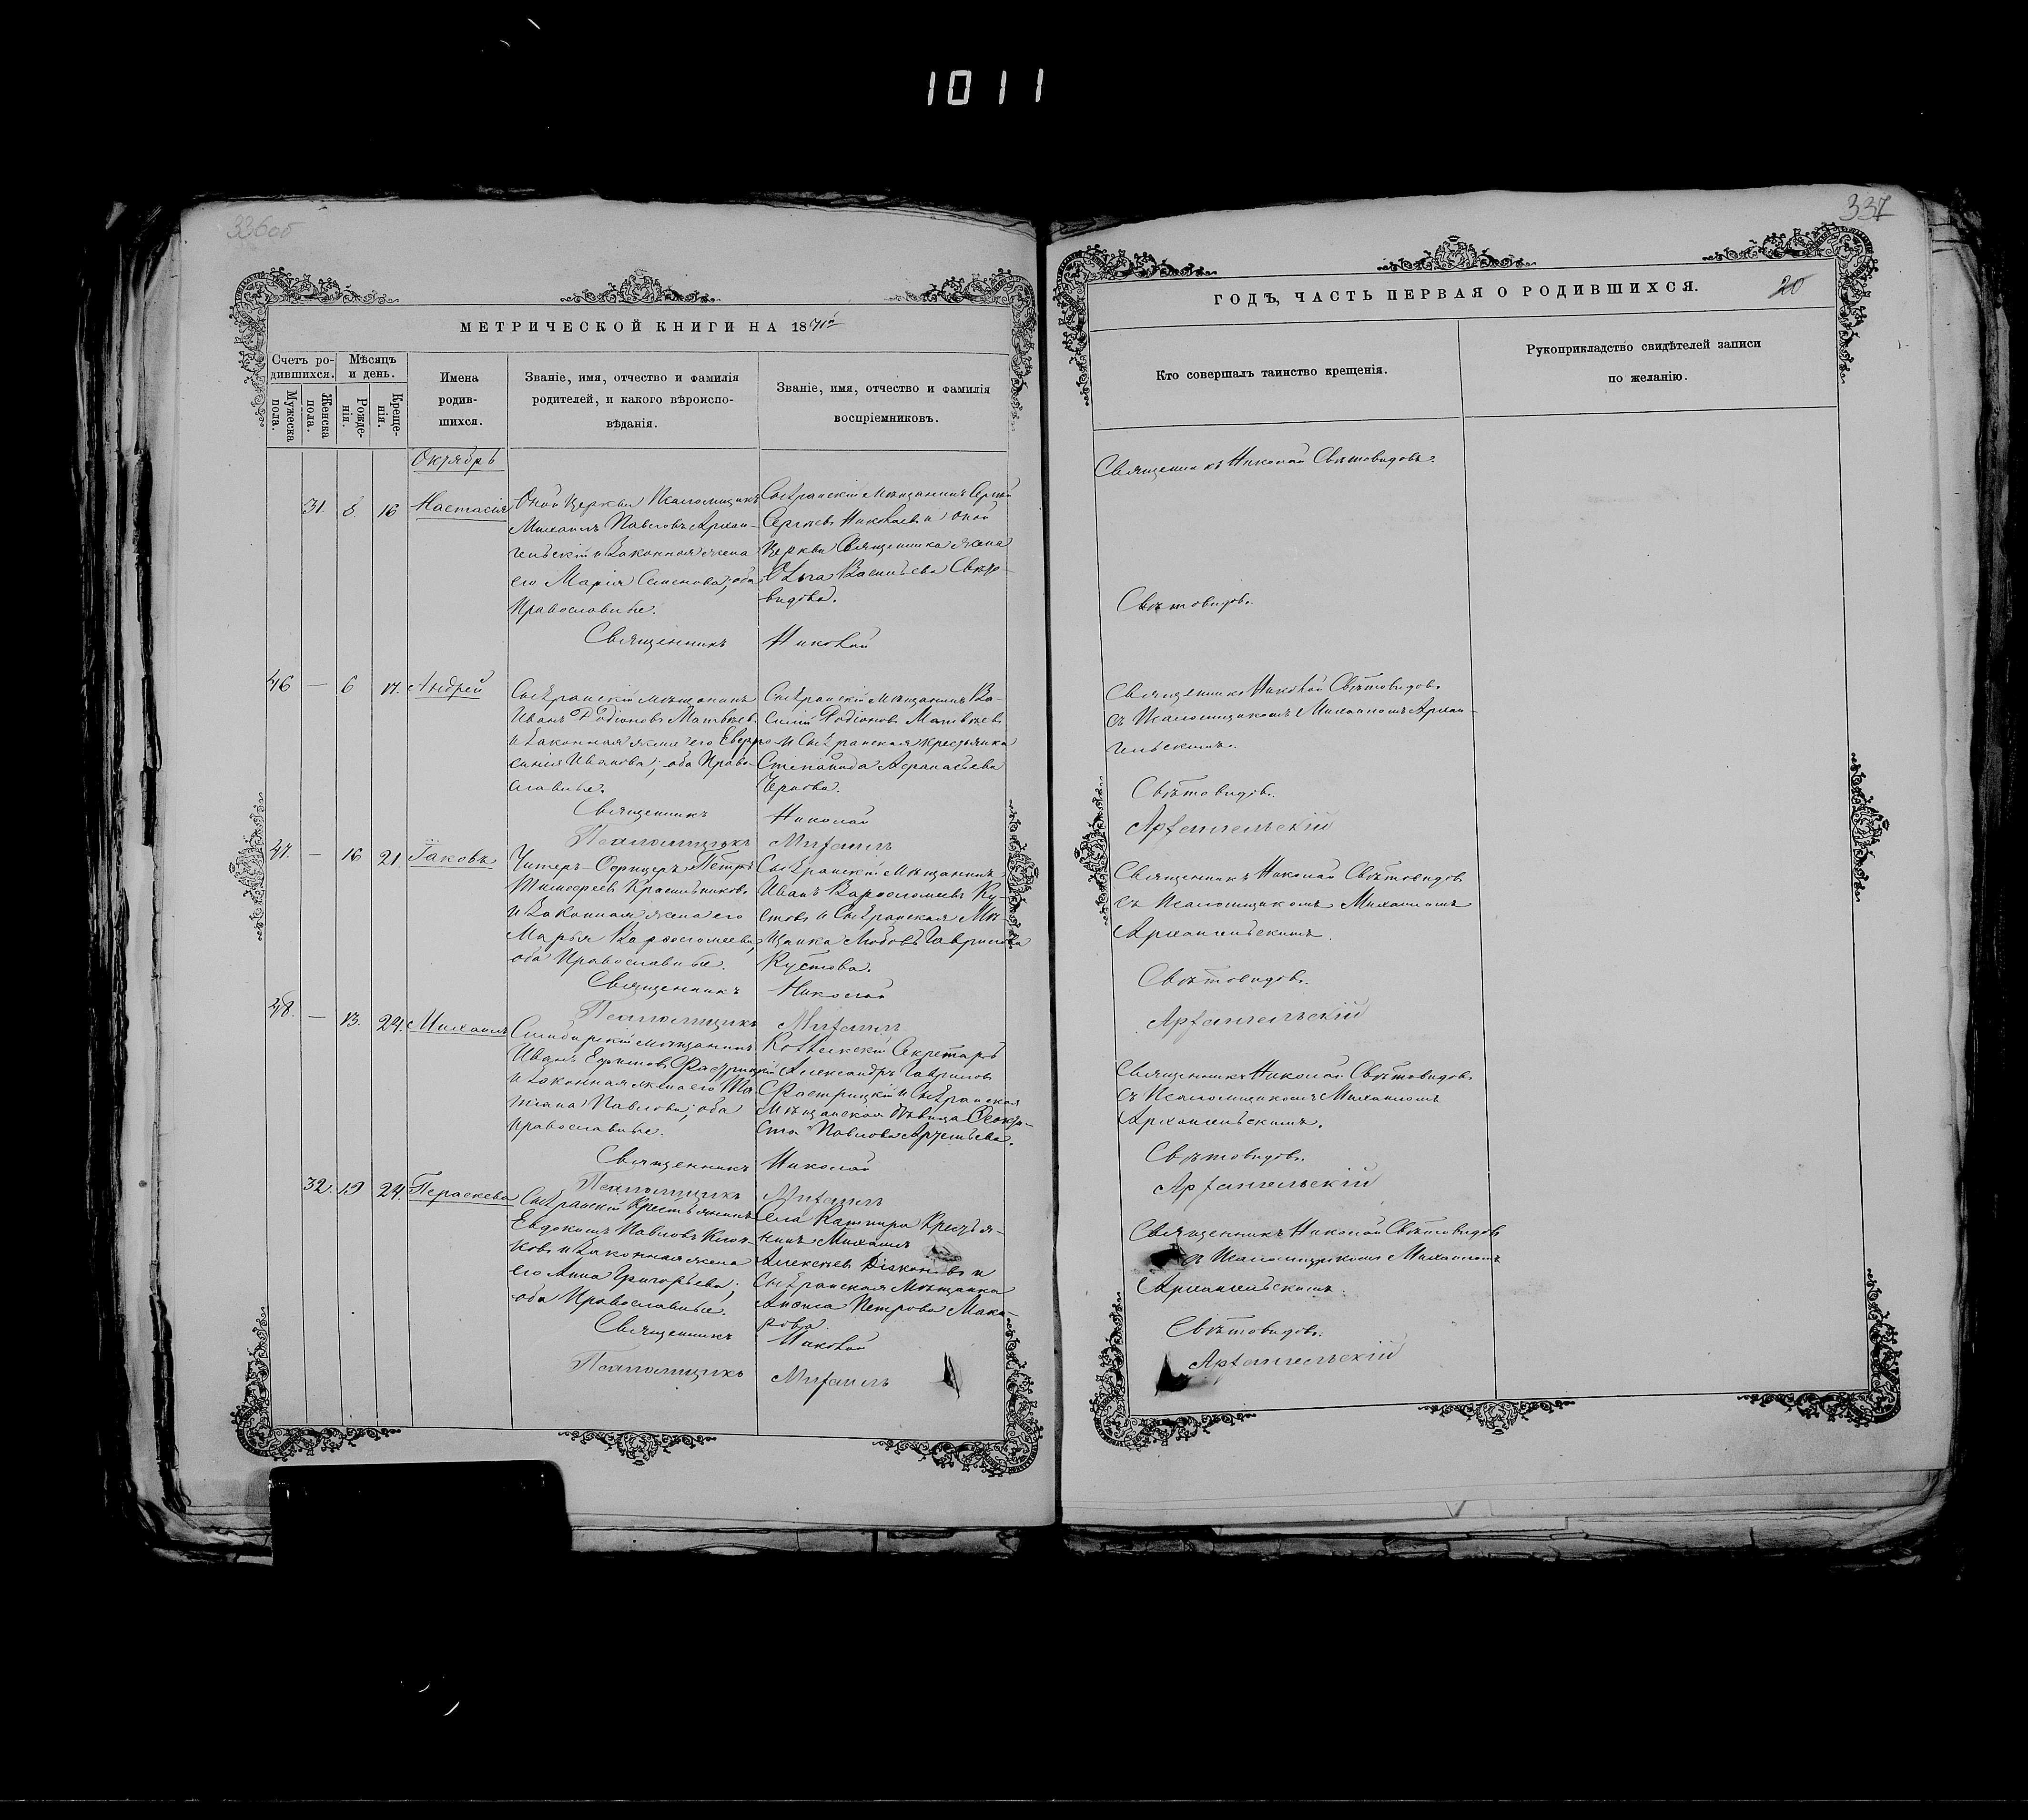 1011
336об
МЕТРИЧЕСКОЙ КНИГИ НА 1871й
Счетъ ро-
дившихся.
Мѣсяцъ
и день.
Мужеска
пола.
Женска
пола.
Рожде-
нія.
Креще-
нія.
Имена
родив-
шихся.
Званіе, имя, отчество и фамилія
родителей, и какого вѣроиспо-
вѣданія.
Званіе, имя, отчество и фамилія
воспріемниковъ.
Октябрь
31. 8. 16 Настасія
Оной Церкви Псаломщикъ
Михаилъ Павловъ Архан-
гельскій и Законная жена
его Марія Семенова; оба
Православные.
Сызранскій Мѣщанинъ Сергей
Сергѣевъ Николаевъ и оной
Церкви Священника жена
Ольга Васильева Свѣто-
видова.
Священникъ Николай
46 — 6 17. Андрей
Сызранскій мѣщанинъ
Иванъ Родіоновъ Матвѣевъ
и Законная жена его Евфро-
синія Иванова; оба Право-
славные.
Сызранскій Мѣщанинъ Ва-
силій Родіоновъ Матвѣевъ
и Сызранская крестьянка
Степанида Афанасьева
Чернова.
Священникъ Николай
Псаломщикъ Михаилъ
47. — 16 21 Іаковъ
Унтеръ-Офицеръ Петръ
Тимофеевъ Красильниковъ
и Законная жена его
Марья Варфоломеева,
оба Православные.
Сызранскій Мѣщанинъ
Иванъ Варфоломеевъ Ку-
стовъ и Сызранская Мѣ-
щанка Любовь Гаврилова
Кустова.
Священникъ Николай
Псаломщикъ Михаилъ
48. — 13. 24. Михаилъ
Симбирскій мѣщанинъ
Иванъ Ефимовъ Фастрицкій
и Законная жена его Та-
тіана Павлова; оба
Православные.
Коллежскій Секретарь
Александръ Гавриловъ
Фастрицкій и Сызранская
Мѣщанская дѣвица Феокти-
ста Павлова
Священникъ Николай
Псаломщикъ Михаилъ
32. 19 24. Параскева
Сызранскій Крестьянинъ
Евдокимъ Павловъ
и Законная жена
его Анна Григорьева;
оба Православные.
Села Кашпира Крестья-
нинъ Михаилъ
Алексѣевъ Діаконовъ и
Сызранская Мѣщанка
Анѳиса Петрова Мака-
рова.
Священникъ Николай
Псаломщикъ Михаилъ
337
ГОДЪ, ЧАСТЬ ПЕРВАЯ О РОДИВШИХСЯ.
20
Кто совершалъ таинство крещенія.
Рукоприкладство свидѣтелей записи
по желанію.
Священникъ Николай Свѣтовидовъ.
Свѣтовидовъ.
Священникъ Николай Свѣтовидовъ.
съ Псаломщикомъ Михаиломъ Архан-
гельскимъ.
Свѣтовидовъ.
Архангельскій
Священникъ Николай Свѣтовидовъ
съ Псаломщикомъ Михаиломъ
Архангельскимъ.
Свѣтовидовъ.
Архангельскій
Священникъ Николай Свѣтовидовъ.
съ Псаломщикомъ Михаиломъ
Архангельскимъ.
Свѣтовидовъ.
Архангельскій
Священникъ Николай Свѣтовидовъ
съ Псаломщикомъ Михаиломъ
Архангельскимъ.
Свѣтовидовъ.
Архангельскій